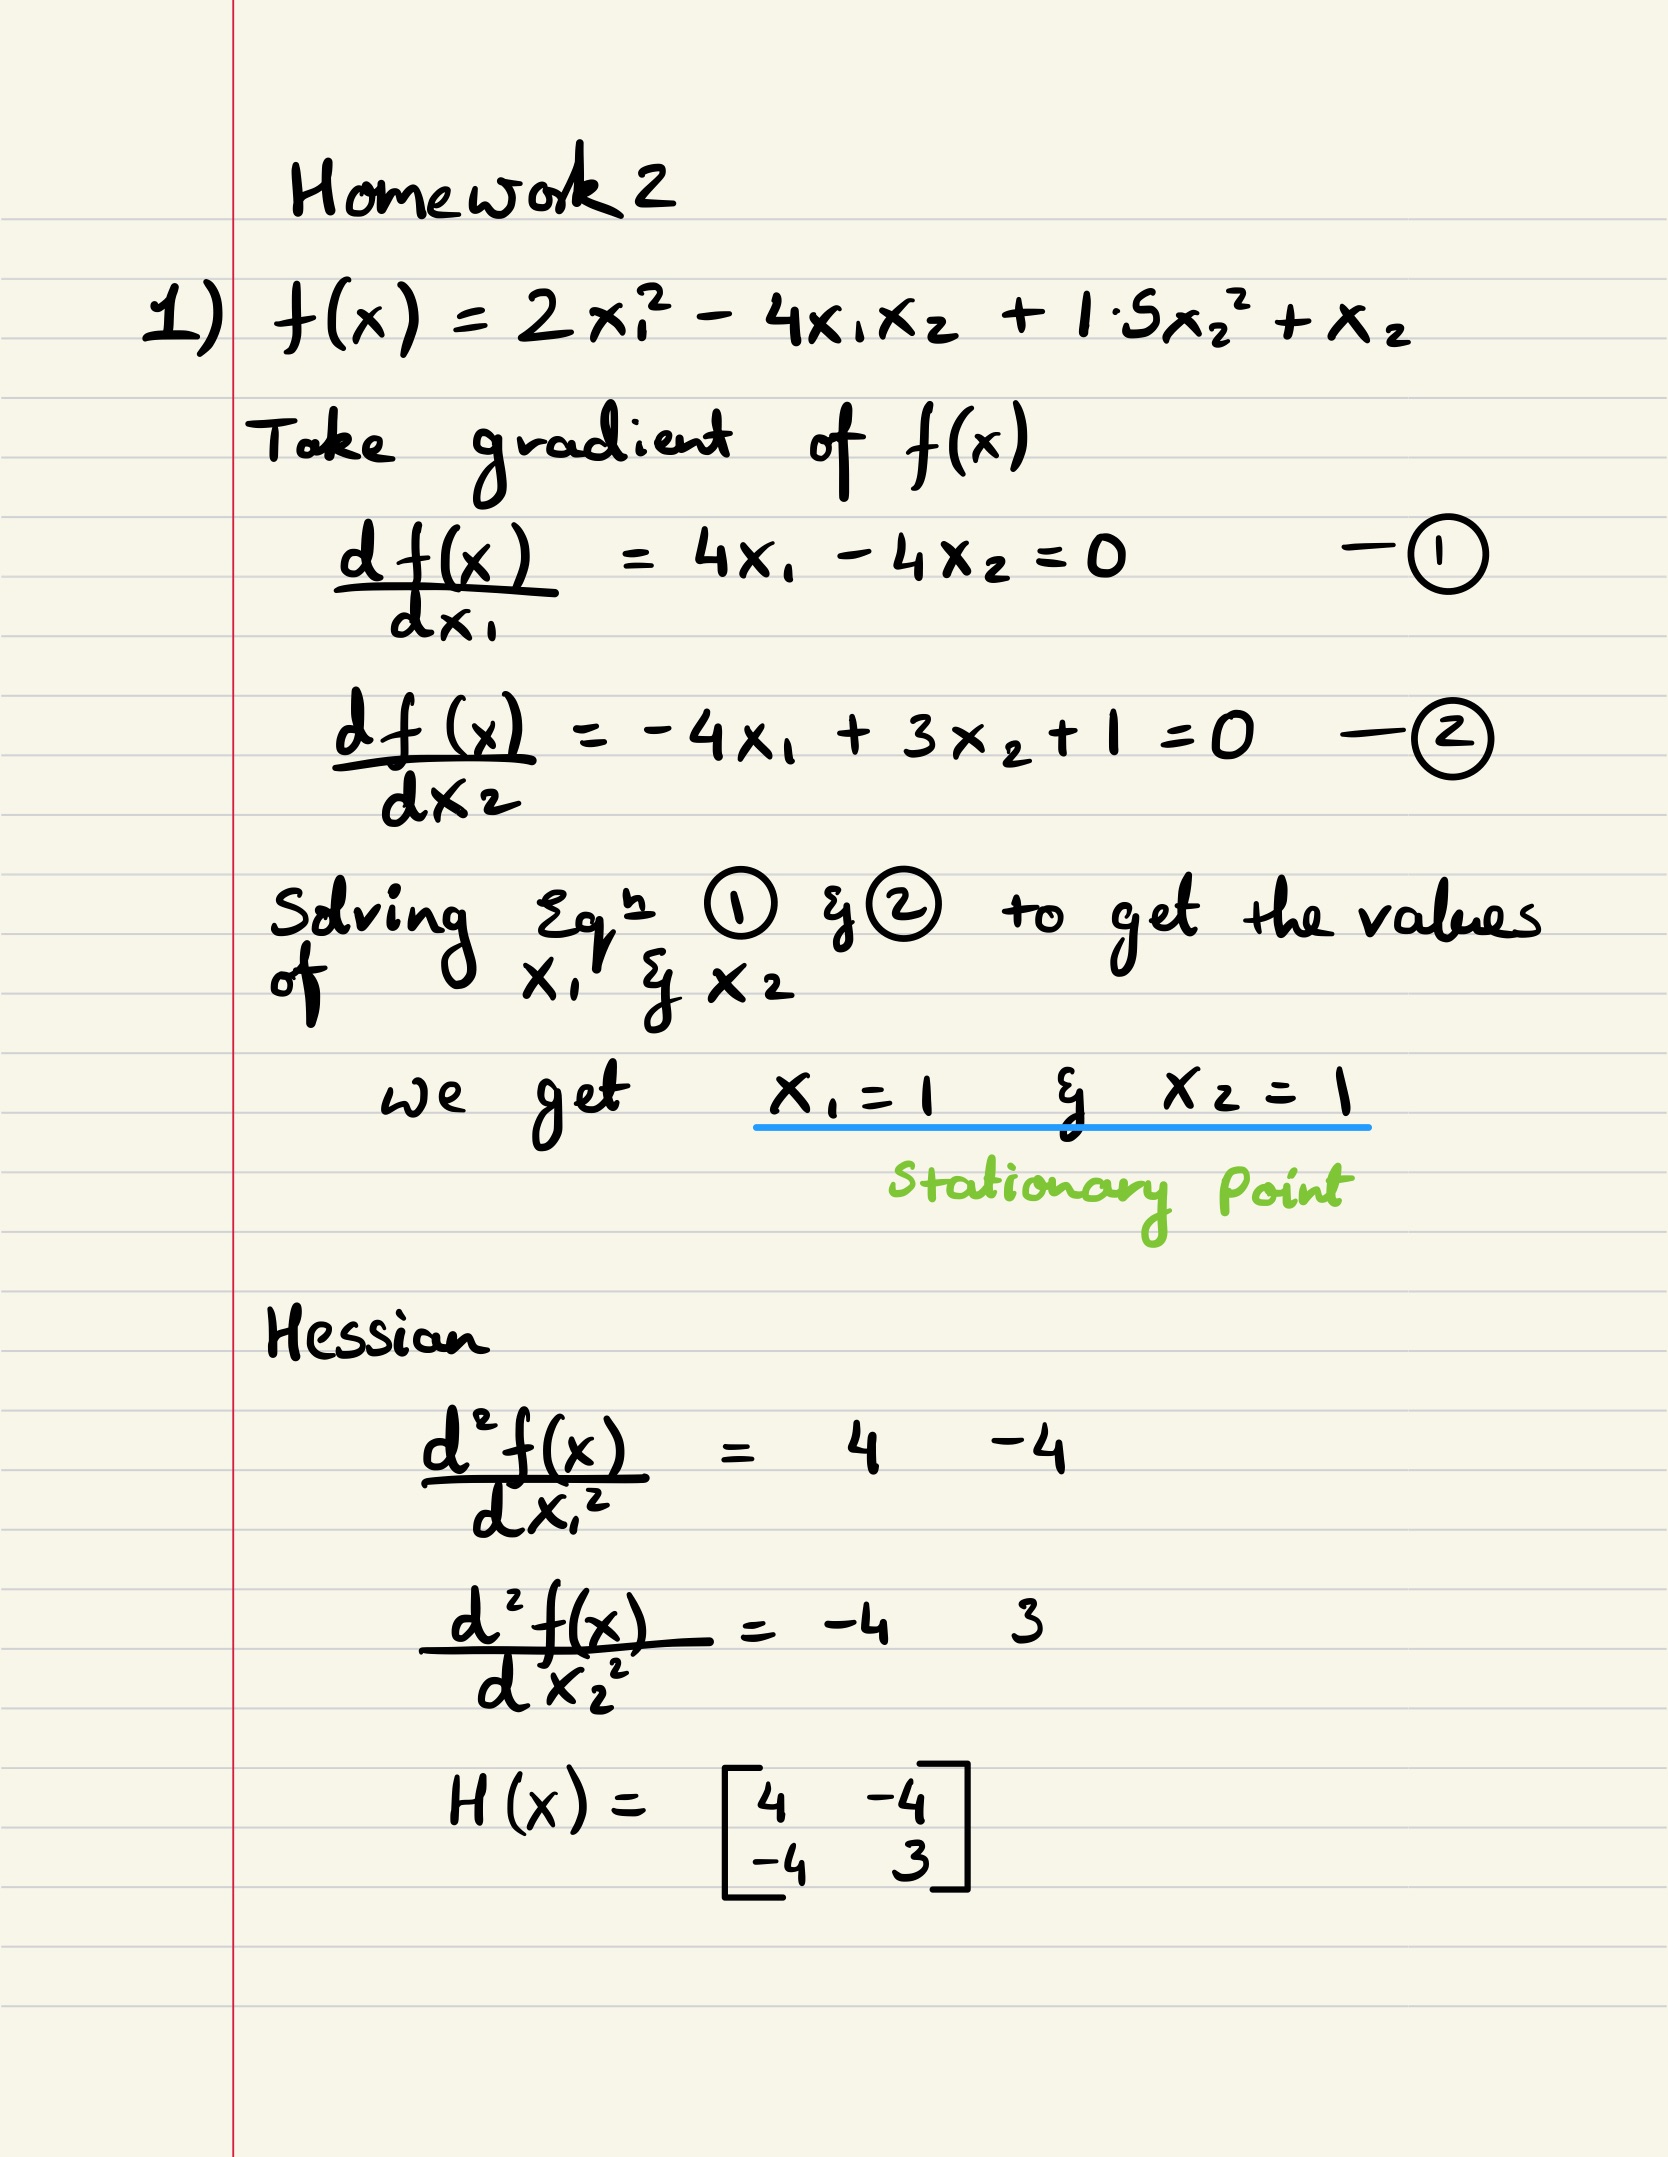 Homework 2
1) f(x) = 2x₁² - 4x₁x₂ + 1.5x₂² + x₂
Take gradient of f(x)
df(x)/dx₁ = 4x₁ - 4x₂ = 0 - ①
df(x)/dx₂ = -4x₁ + 3x₂ + 1 = 0 - ②
Solving Eqⁿ ① & ② to get the values
of x₁ & x₂
we get x₁ = 1 & x₂ = 1
Stationary Point
Hessian
d²f(x)/dx₁² = 4 -4
d²f(x)/dx₂² = -4 3
H(x) = [4 -4
-4 3]